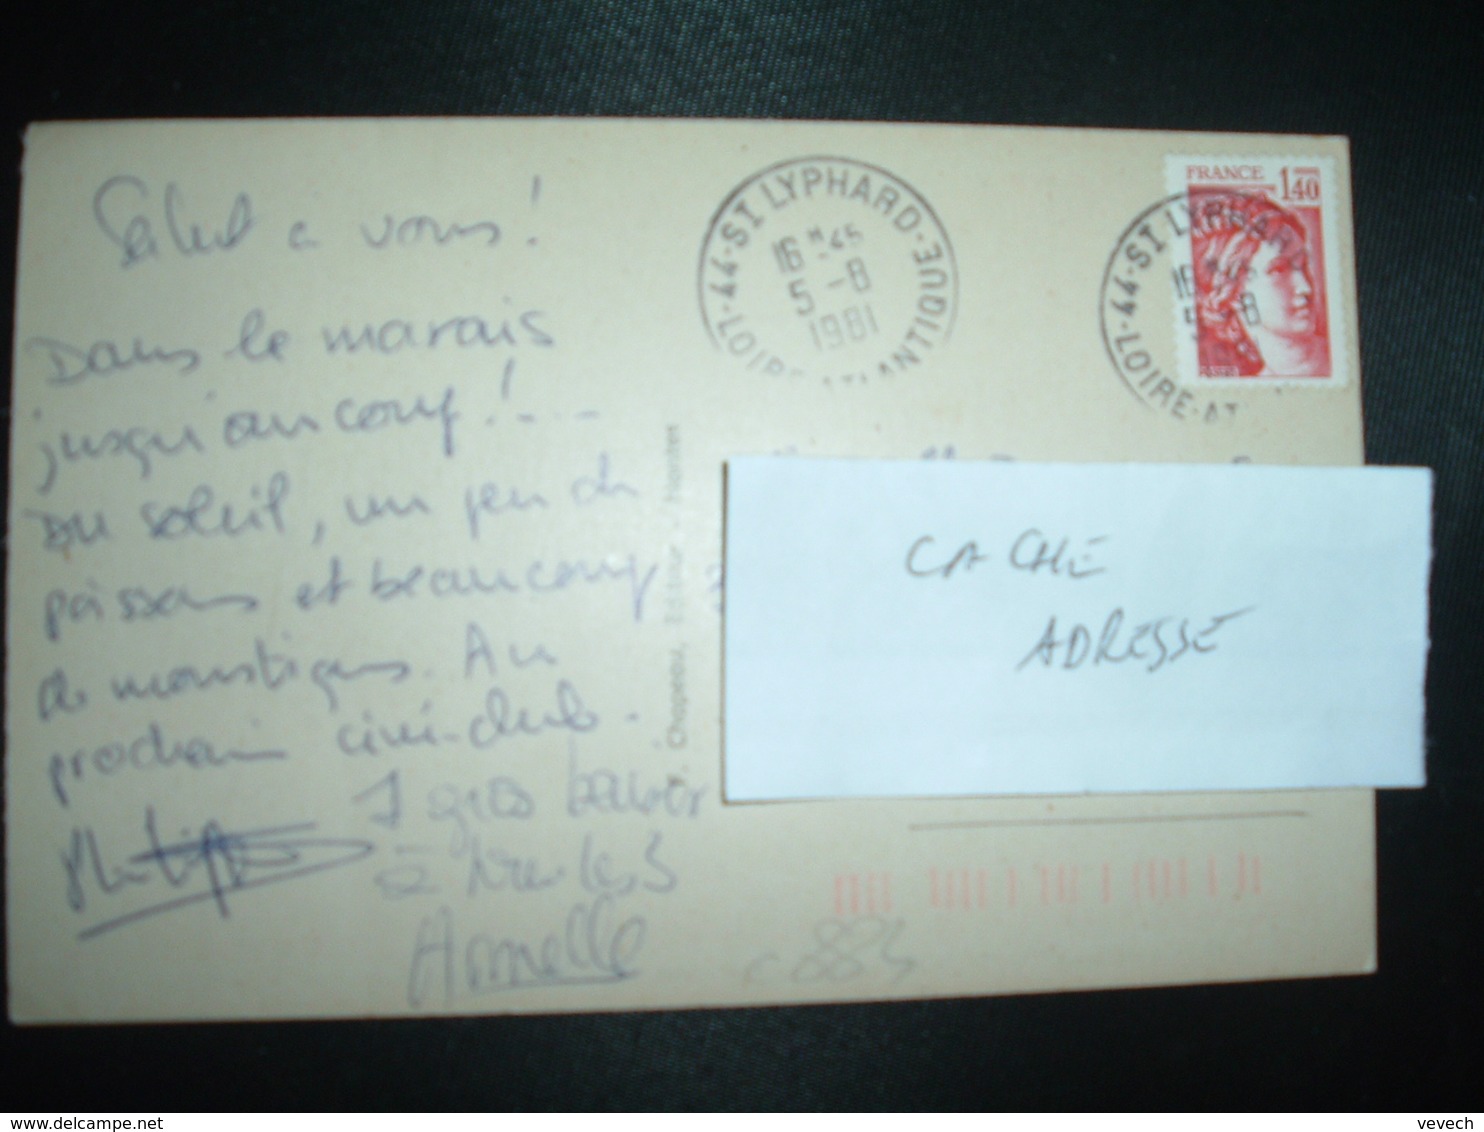 Salut a vous !
Dans le marais
jusqu'au coup !...
Du soleil, un peu de
poissons et beaucoup
de moustiques. Au
prochain ciné-club.
1 gros baiser
à tre les 3
Armelle
Y. Chapeau, Editeur - Nantes
44-ST LYPHARD-
LOIRE-ATLANTIQUE
16 H 45
5 -8
1981
FRANCE
1,40
44-ST LYPHARD
16 H 45
5 -8
LOIRE-AT
CACHE
ADRESSE
vevech